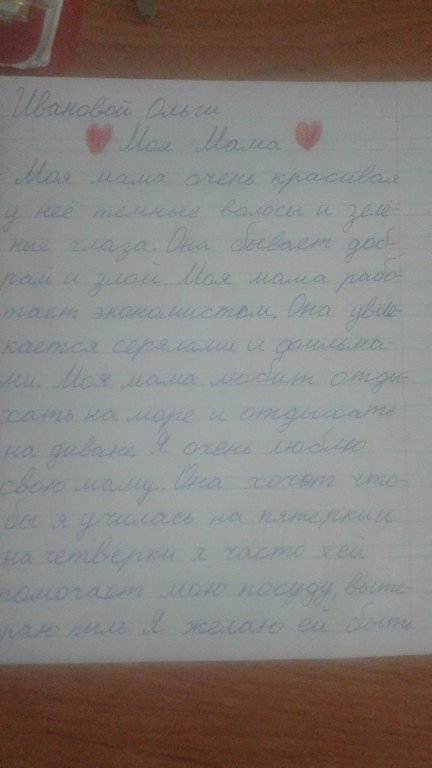 Ивановой Ольги
Моя Мама
Моя мама очень красивая
у неё тёмные волосы и зелё-
ные глаза. Она бывает доб-
рай и злой. Моя мама рабо-
тает экономистом. Она увле-
кается серялами и фильма-
ми. Моя мама любит отды-
хать на море и отдыхать
на диване. Я очень люблю
свою маму. Она хочет что-
бы я училась на пятёрки и
на четвёрки я часто ей
помочает мою посуду, выте-
раю пыль Я желаю ей быть